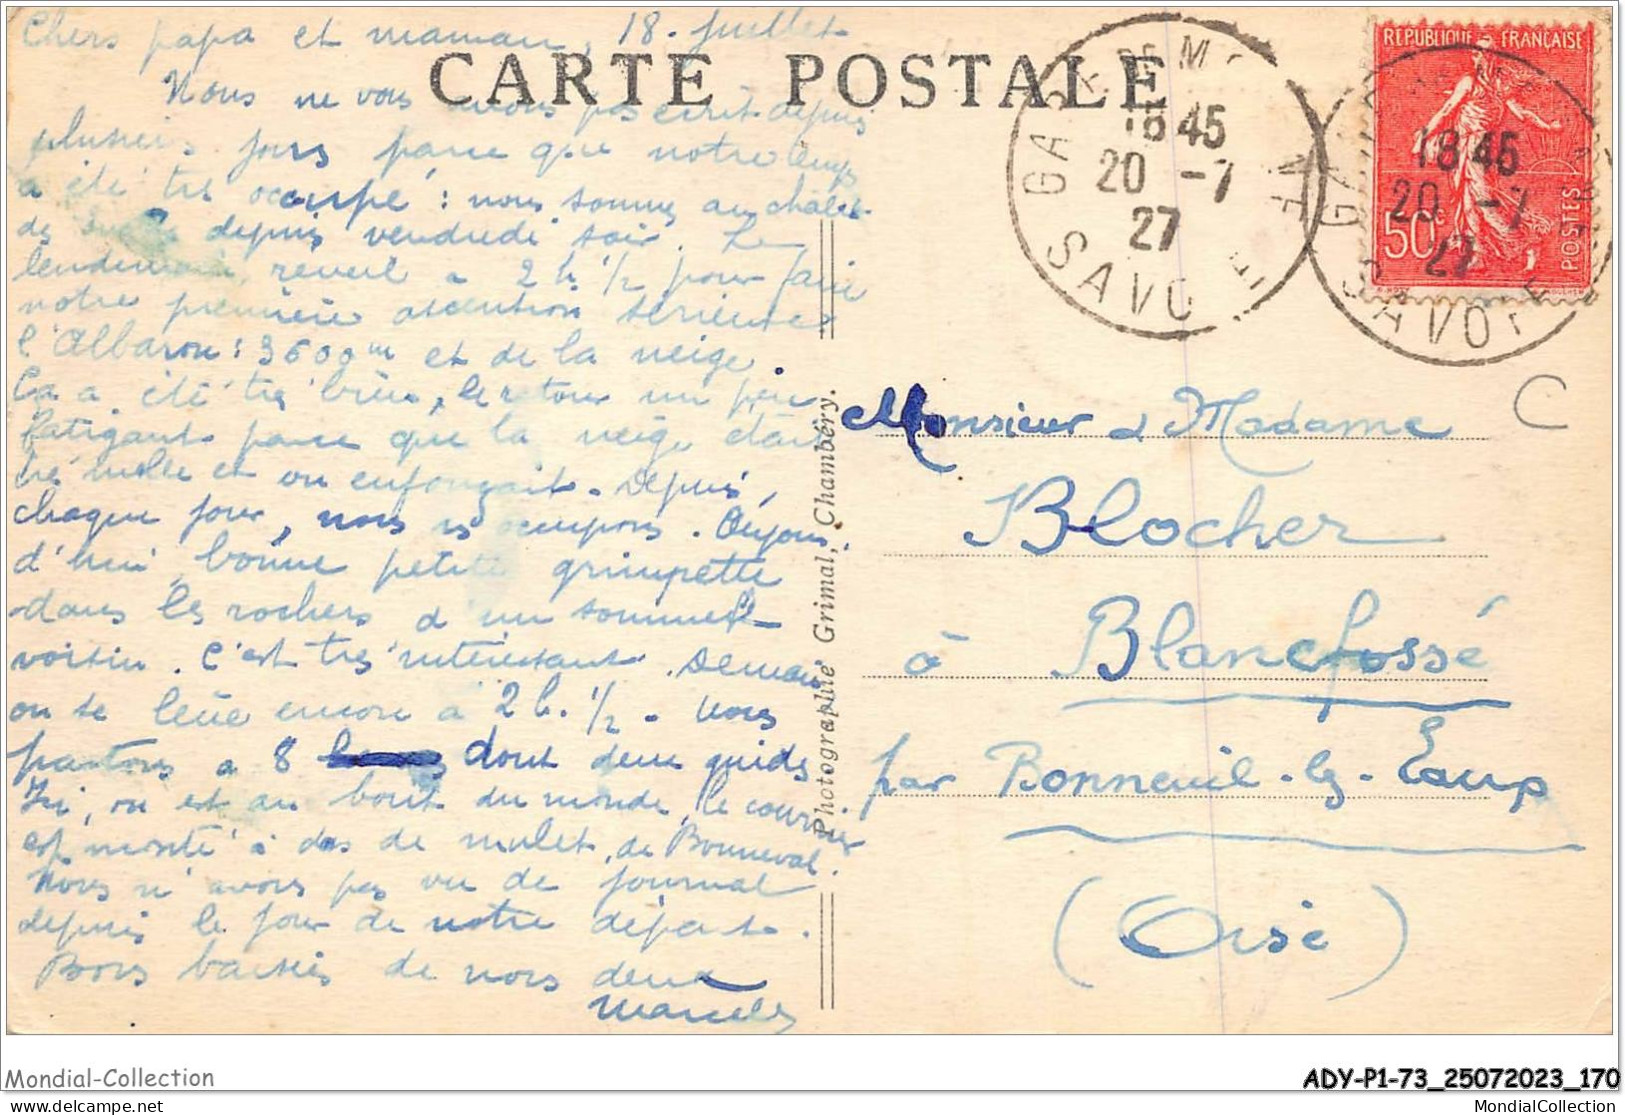 Chers papa et maman, 18. Juillet
CARTE POSTALE
Nous ne vous avons pas écrit depuis
plusieurs jours parce que notre temps
a été très occupé : nous sommes au chalet
de depuis vendredi soir. Le
lendemain, réveil à 2 h 1/2 pour faire
notre première ascention sérieuse
l'Albaron : 3600m et de la neige.
Ça a été très bien, le retour un peu
fatigant parce que la neige était
très molle et on enfonçait. Depuis,
chaque jour, nous ns occupons. Aujour
d'hui, bonne petite grimpette
dans les rochers d'un sommet
voisin. C'est très intéressant. Demain
on se lève encore à 2 h. 1/2. Nous
partons à 8 dont deux guides
Ici, on est au bout du monde, le courrier
est monté à dos de mulet, de Bonneval.
Nous n'avons pas vu de journal
depuis le jour de notre départ.
Bons baisers de nous deux
Photographie Grimal, Chambéry.
GARE DE M
18 45
20 -7
27
SAVOIE
RÉPUBLIQUE FRANÇAISE
50c
POSTES
18 45
20 -7
27
SAVOIE
C
Monsieur & Madame
Blocher
à Blancfossé
par Bonneuil-les-Eaux
(Oise)
Mondial-Collection
ADY-P1-73_25072023_170
delcampe.net
MondialCollection